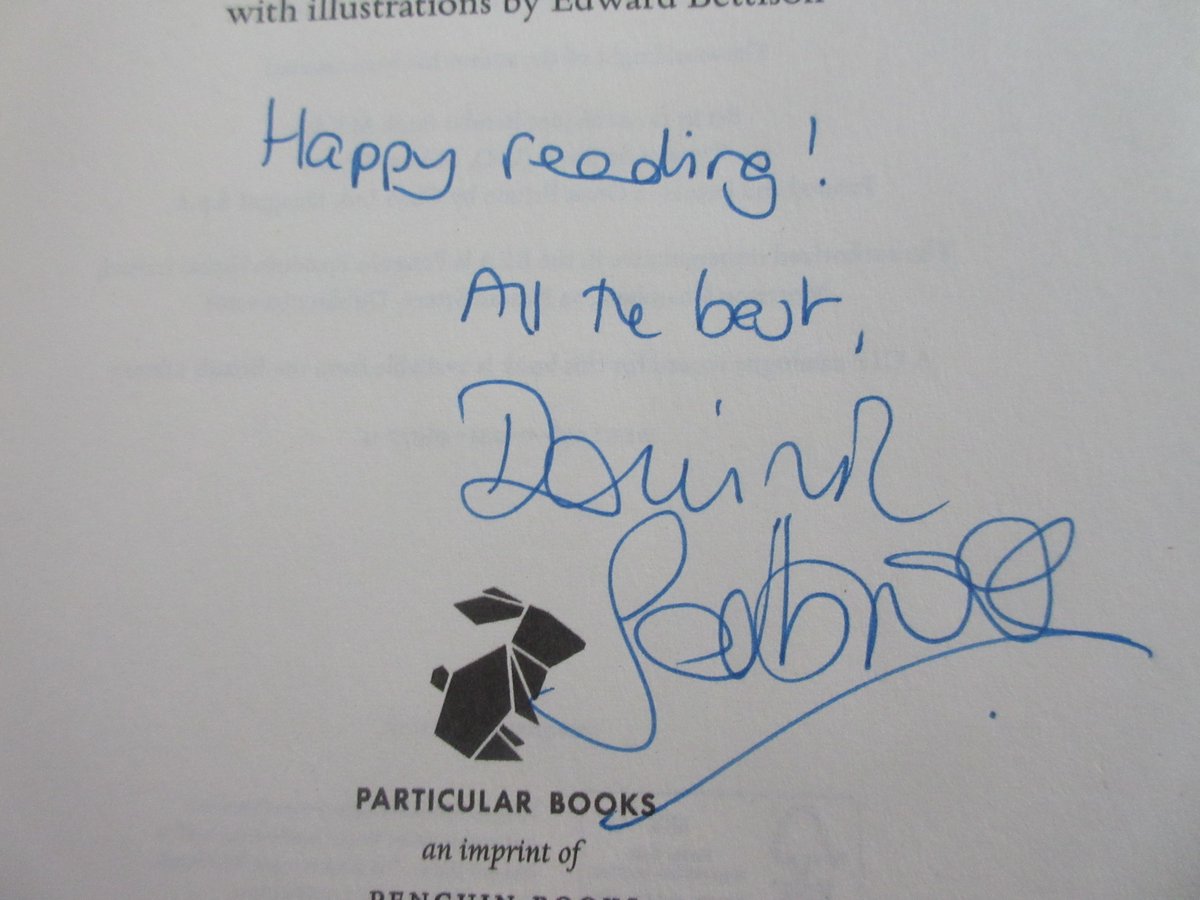 with illustrations by Edward Bettison
Happy reading!
All the best,
Dominic
PARTICULAR BOOKS
an imprint of
PENGUIN BOOKS